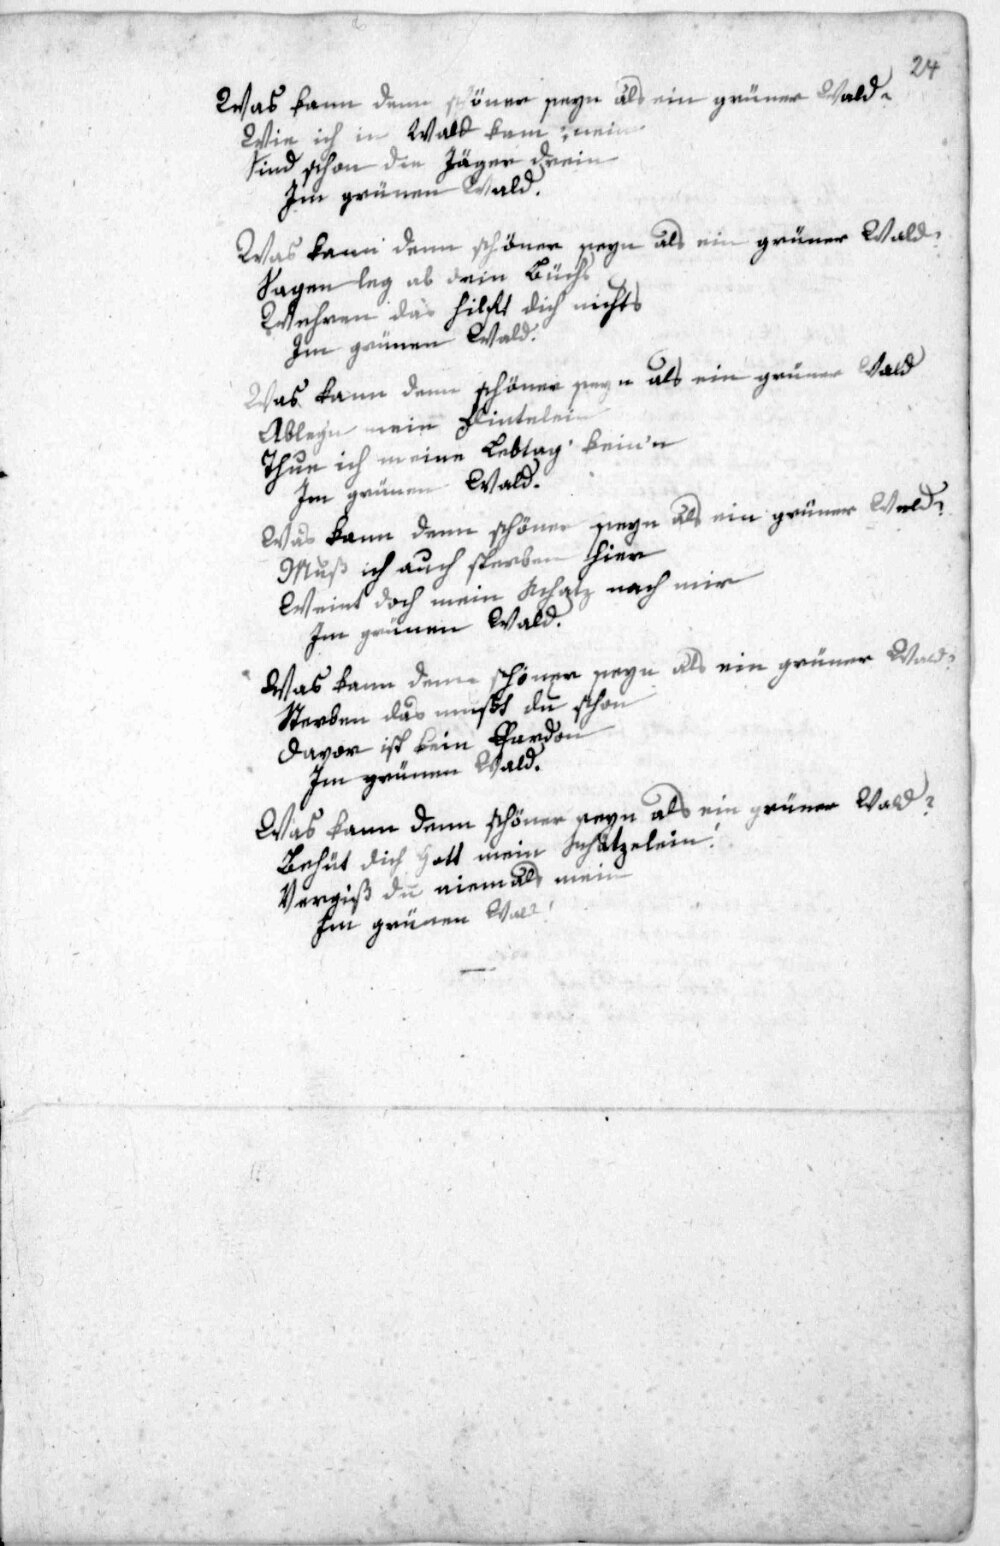 24
Was kann denn schöner seyn als ein grüner Wald?
Wie ich in Wald kam 'nein
Sind schon die Jäger drein
Im grünen Wald.
Was kann denn schöner seyn als ein grüner Wald?
Sagen leg ab dein Büchs
Wehren das hilft dich nichts
Im grünen Wald.
Was kann denn schöner seyn als ein grüner Wald
Ablegn mein Flintelein
Thue ich meine Lebtag kein'n
Im grünen Wald.
Was kann denn schöner seyn als ein grüner Wald?
Muß ich auch sterben hier
Weint doch mein Schatz nach mir
Im grünen Wald.
Was kann denn schöner seyn als ein grüner Wald?
Sterben das mußt du schon
Davor ist kein Pardon
Im grünen Wald.
Was kann denn schöner seyn als ein grüner Wald?
Behüt dich Gott mein Schätzelein!
Vergiß du niemals mein
Im grünen Wald!